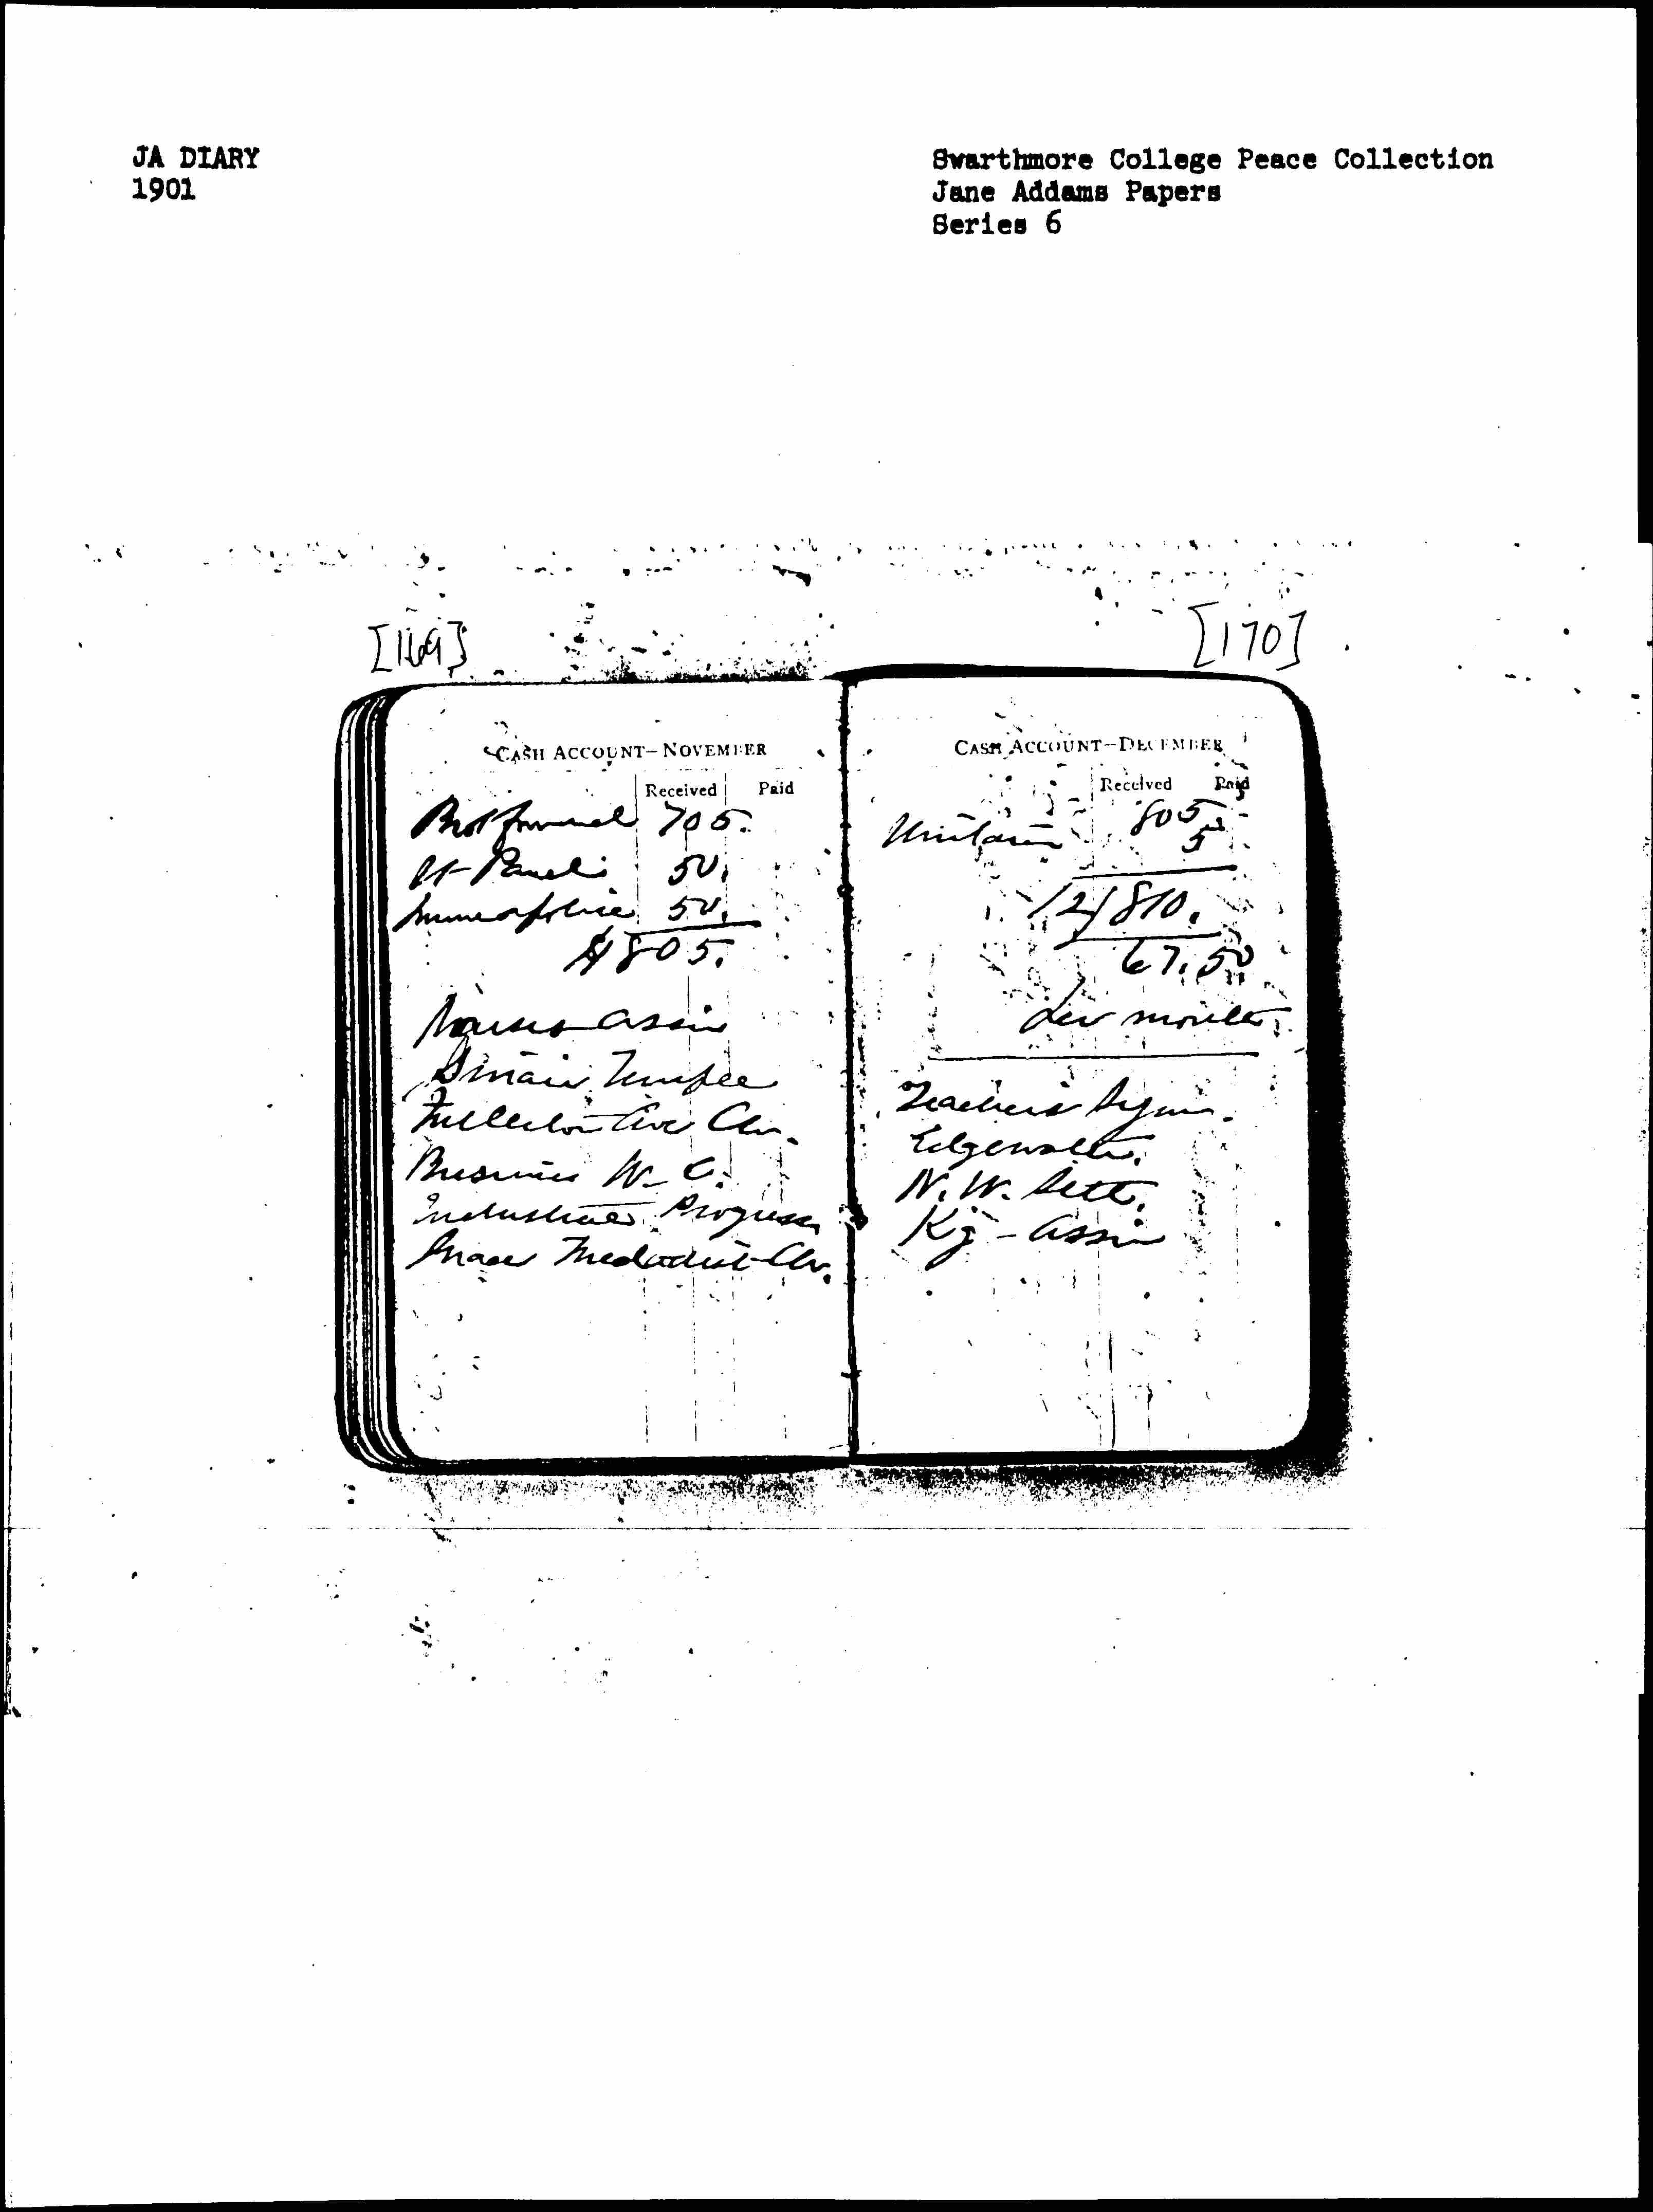 JA DIARY
1901
Swarthmore College Peace Collection
Jane Addams Papers
Series 6
[169]
[170]
CASH ACCOUNT—NOVEMBER
Received Paid
Brot forward 705.
St Paul 50.
Minneapolis 50.
$805.
Nurses Assn
Sinai Temple
Fullerton Ave Ch.
Business W. C.
Industrial Progress
Grace Methodist Ch.
CASH ACCOUNT—DECEMBER
Received Paid
805
Unitarian 5
12/810.
67.50
per month
Teachers
Edgewater.
N. W. Sett.
Kg - Assn